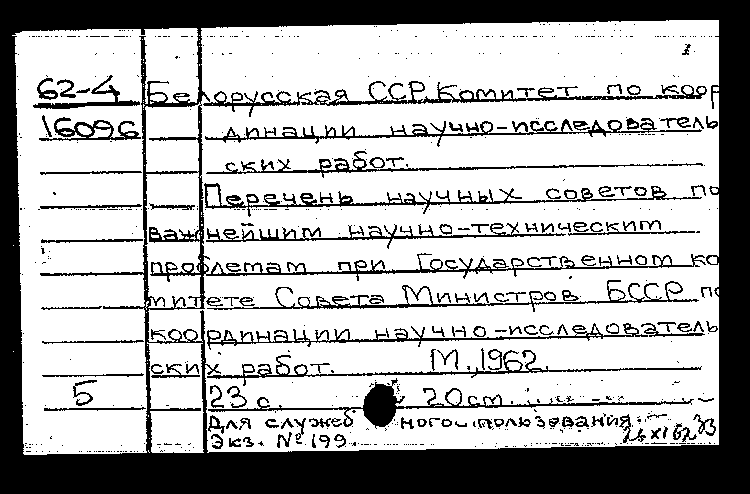 1
62-4 Белорусская ССР. Комитет по коор
16096 динации научно-исследователь
ских работ.
Перечень научных советов по
важнейшим научно-техническим
проблемам при Государственном ко
митете Совета Министров БССР по
координации научно-исследователь
ских работ. М., 1962.
5 23 с. 20 см.
Для служебного пользования.
Экз. № 199.